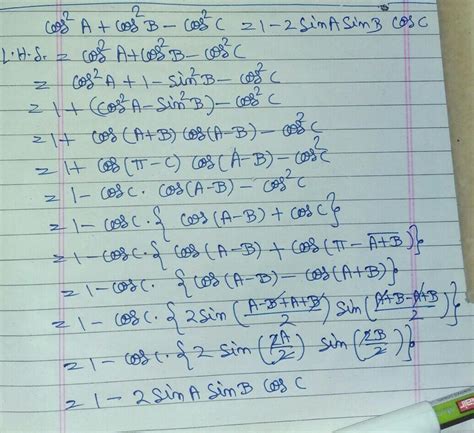 cos²A + cos²B − cos²C = 1 − 2 sinA sinB cosC
L.H.S. = cos²A + cos²B − cos²C
= cos²A + 1 − sin²B − cos²C
= 1 + (cos²A − sin²B) − cos²C
= 1 + cos(A+B) cos(A−B) − cos²C
= 1 + cos(π−C) cos(A−B) − cos²C
= 1 − cosC. cos(A−B) − cos²C
= 1 − cosC. { cos(A−B) + cosC}
= 1 − cosC. { cos(A−B) + cos(π − A+B)}
= 1 − cosC. {cos(A−B) − cos(A+B)}
= 1 − cosC. {2 sin((A−B+A+B)/2) sin((A+B−A+B)/2)}
= 1 − cosC. {2 sin(2A/2) sin(2B/2)}
= 1 − 2 sinA sinB cosC